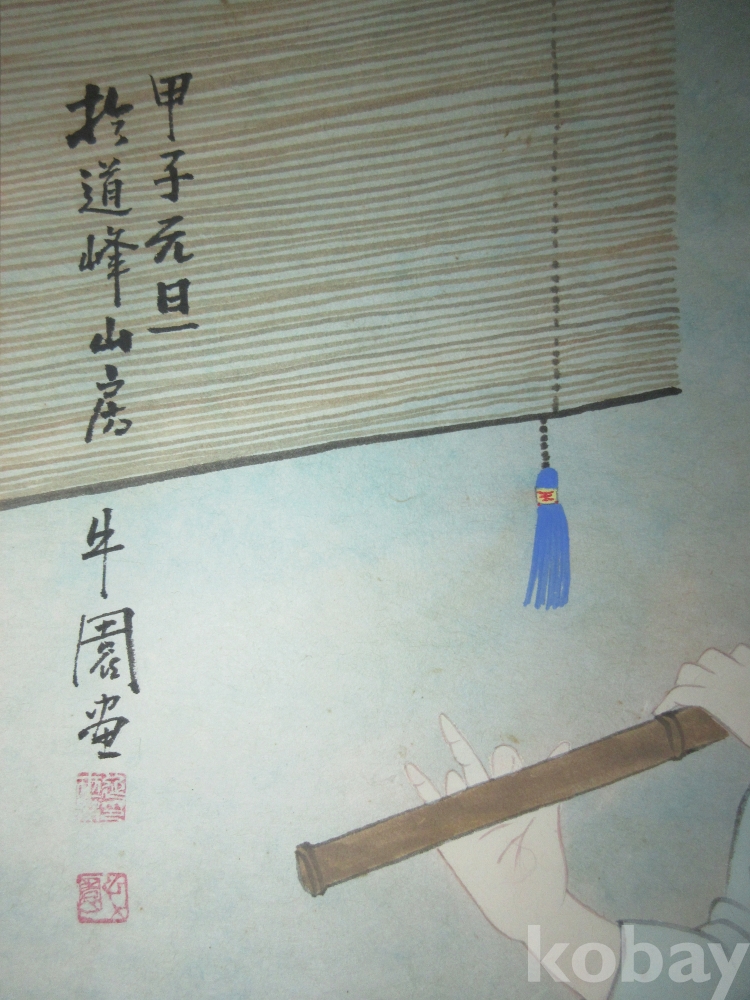 甲子元旦
於道峰山房 牛園畫
kobay